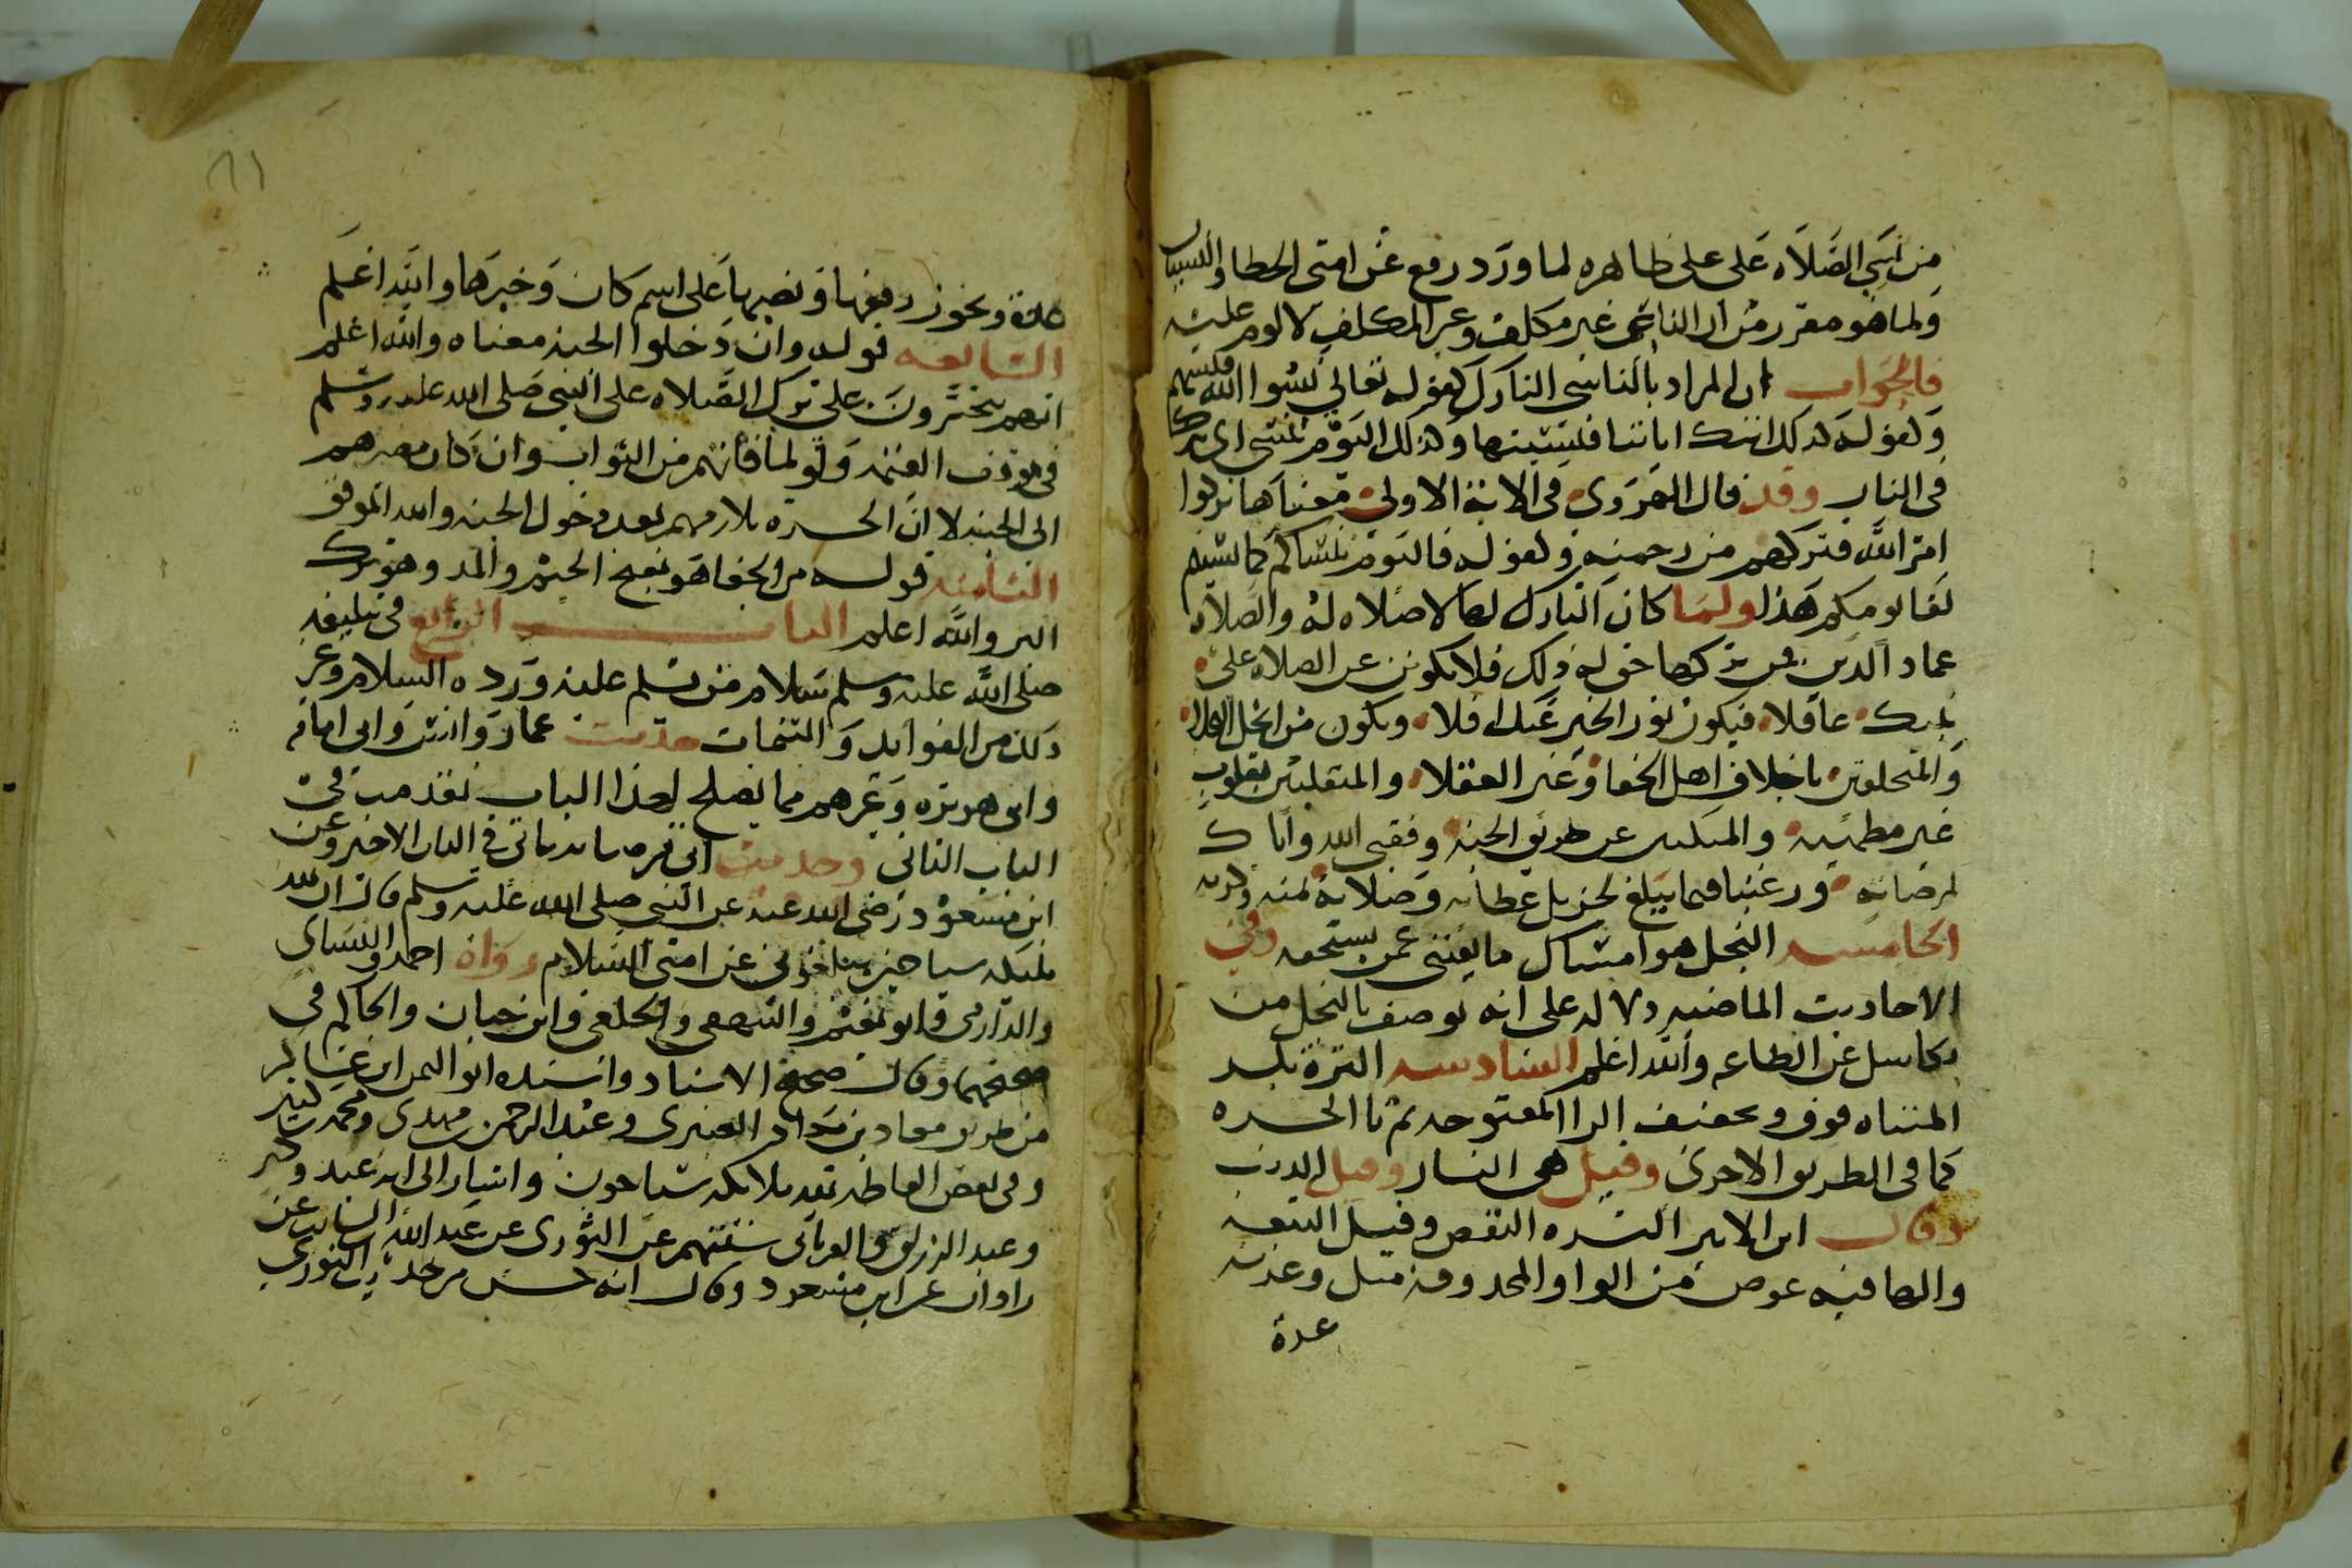 من نسي الصلاة على على ظاهره لما ورد رفع عن امتى الخطا والنسيان
ولما هو مقرر من ان الناسى غير مكلف وغير المكلف لا لوم عليه
فالجواب ان المراد بالناسى التارك كقوله تعالى نسوا الله فنسيهم
وكقوله كذلك اتتك اياتنا فنسيتها وكذلك اليوم تنسى اى تترك
فى النار وقد قال الهروى فى الاية الاولى معناها تركوا
امر الله فتركهم من رحمته وكقوله فاليوم ننساكم كما نسيتم
لقا يومكم هذا ولما كان التارك لها لا صلاه له والصلاه
عماد الدين فمن تركها حق له ذلك فلا تكونن عن الصلاه على
نبيك غافلا فيكون نور الخير عنك افلا وتكون من ابخل البخلا
والمتخلقين باخلاق اهل الجفا وغير العقلا والمتقلبين بقلوب
غير مطمئنه والمنكبين عن طريق الجنه وفقنى الله واياك
لمرضاته ورغبنا فيما يبلغ لجزيل عطائه وصلاته بمنه وكرمه
الخامسه البخل هو امساك ما يقتنى عمن يستحقه وفى
الاحاديث الماضيه دلاله على انه يوصف بالبخل من
تكاسل عن الطاعه والله اعلم السادسه الترة بكسر
المثناه فوق وتخفيف الرا المفتوحه ثم تا الحسره
كما فى الطريق الاخرى وقيل هى النار وقيل الذنب
وقال ابن الاثير الترة النقص وقيل التبعه
والها فيه عوض من الواو المحذوفه مثل وعدته
عدة
عدة ويجوز رفعها ونصبها على اسم كان وخبرها والله اعلم
السابعه قوله وان دخلوا الجنة معناه والله اعلم
انهم يتحسرون على ترك الصلاه على النبى صلى الله عليه وسلم
فى موقف القيمه ولو لما فاتهم من الثواب وان كان مصيرهم
الى الجنه لا ان الحسره تلازمهم بعد دخول الجنه والله الموفق
الثامنه قوله من الجفا هو بفتح الجيم والمد وهو ترك
البر والله اعلم الباب الرابع فى تبليغه
صلى الله عليه وسلم سلام من يسلم عليه ورده السلام وغير
ذلك من الفوايد والتتمات حديث عمار وانس وابى امامه
وابى هريره وغيرهم مما يصلح لهذا الباب تقدمت فى
الباب الثانى وحديث ابى قرصافه ياتى فى الباب الاخير وعن
ابن مسعود رضى الله عنه عن النبى صلى الله عليه وسلم قال ان لله
مليكه سياحين يبلغونى عن امتى السلام رواه احمد والنسائ
والدارمى وابو نعيم والبيهقى والخلعى وابن حبان والحاكم فى
صحيحهما وقال صحيح الاسناد واسنده ابو اليمن ابن عساكر
من طريق معاذ بن معاذ العنبرى وعبد الرحمن بن مهدى ومحمد بن كثير
وفى بعض الفاظه بعد ملائكه سياحون واشار الى ابن عبد وكيع
وعبد الرزاق والفريابى ستتهم عن الثورى عن عبد الله السايب عن
زاذان عن ابن مسعود وقال انه حسن من حديث الثورى